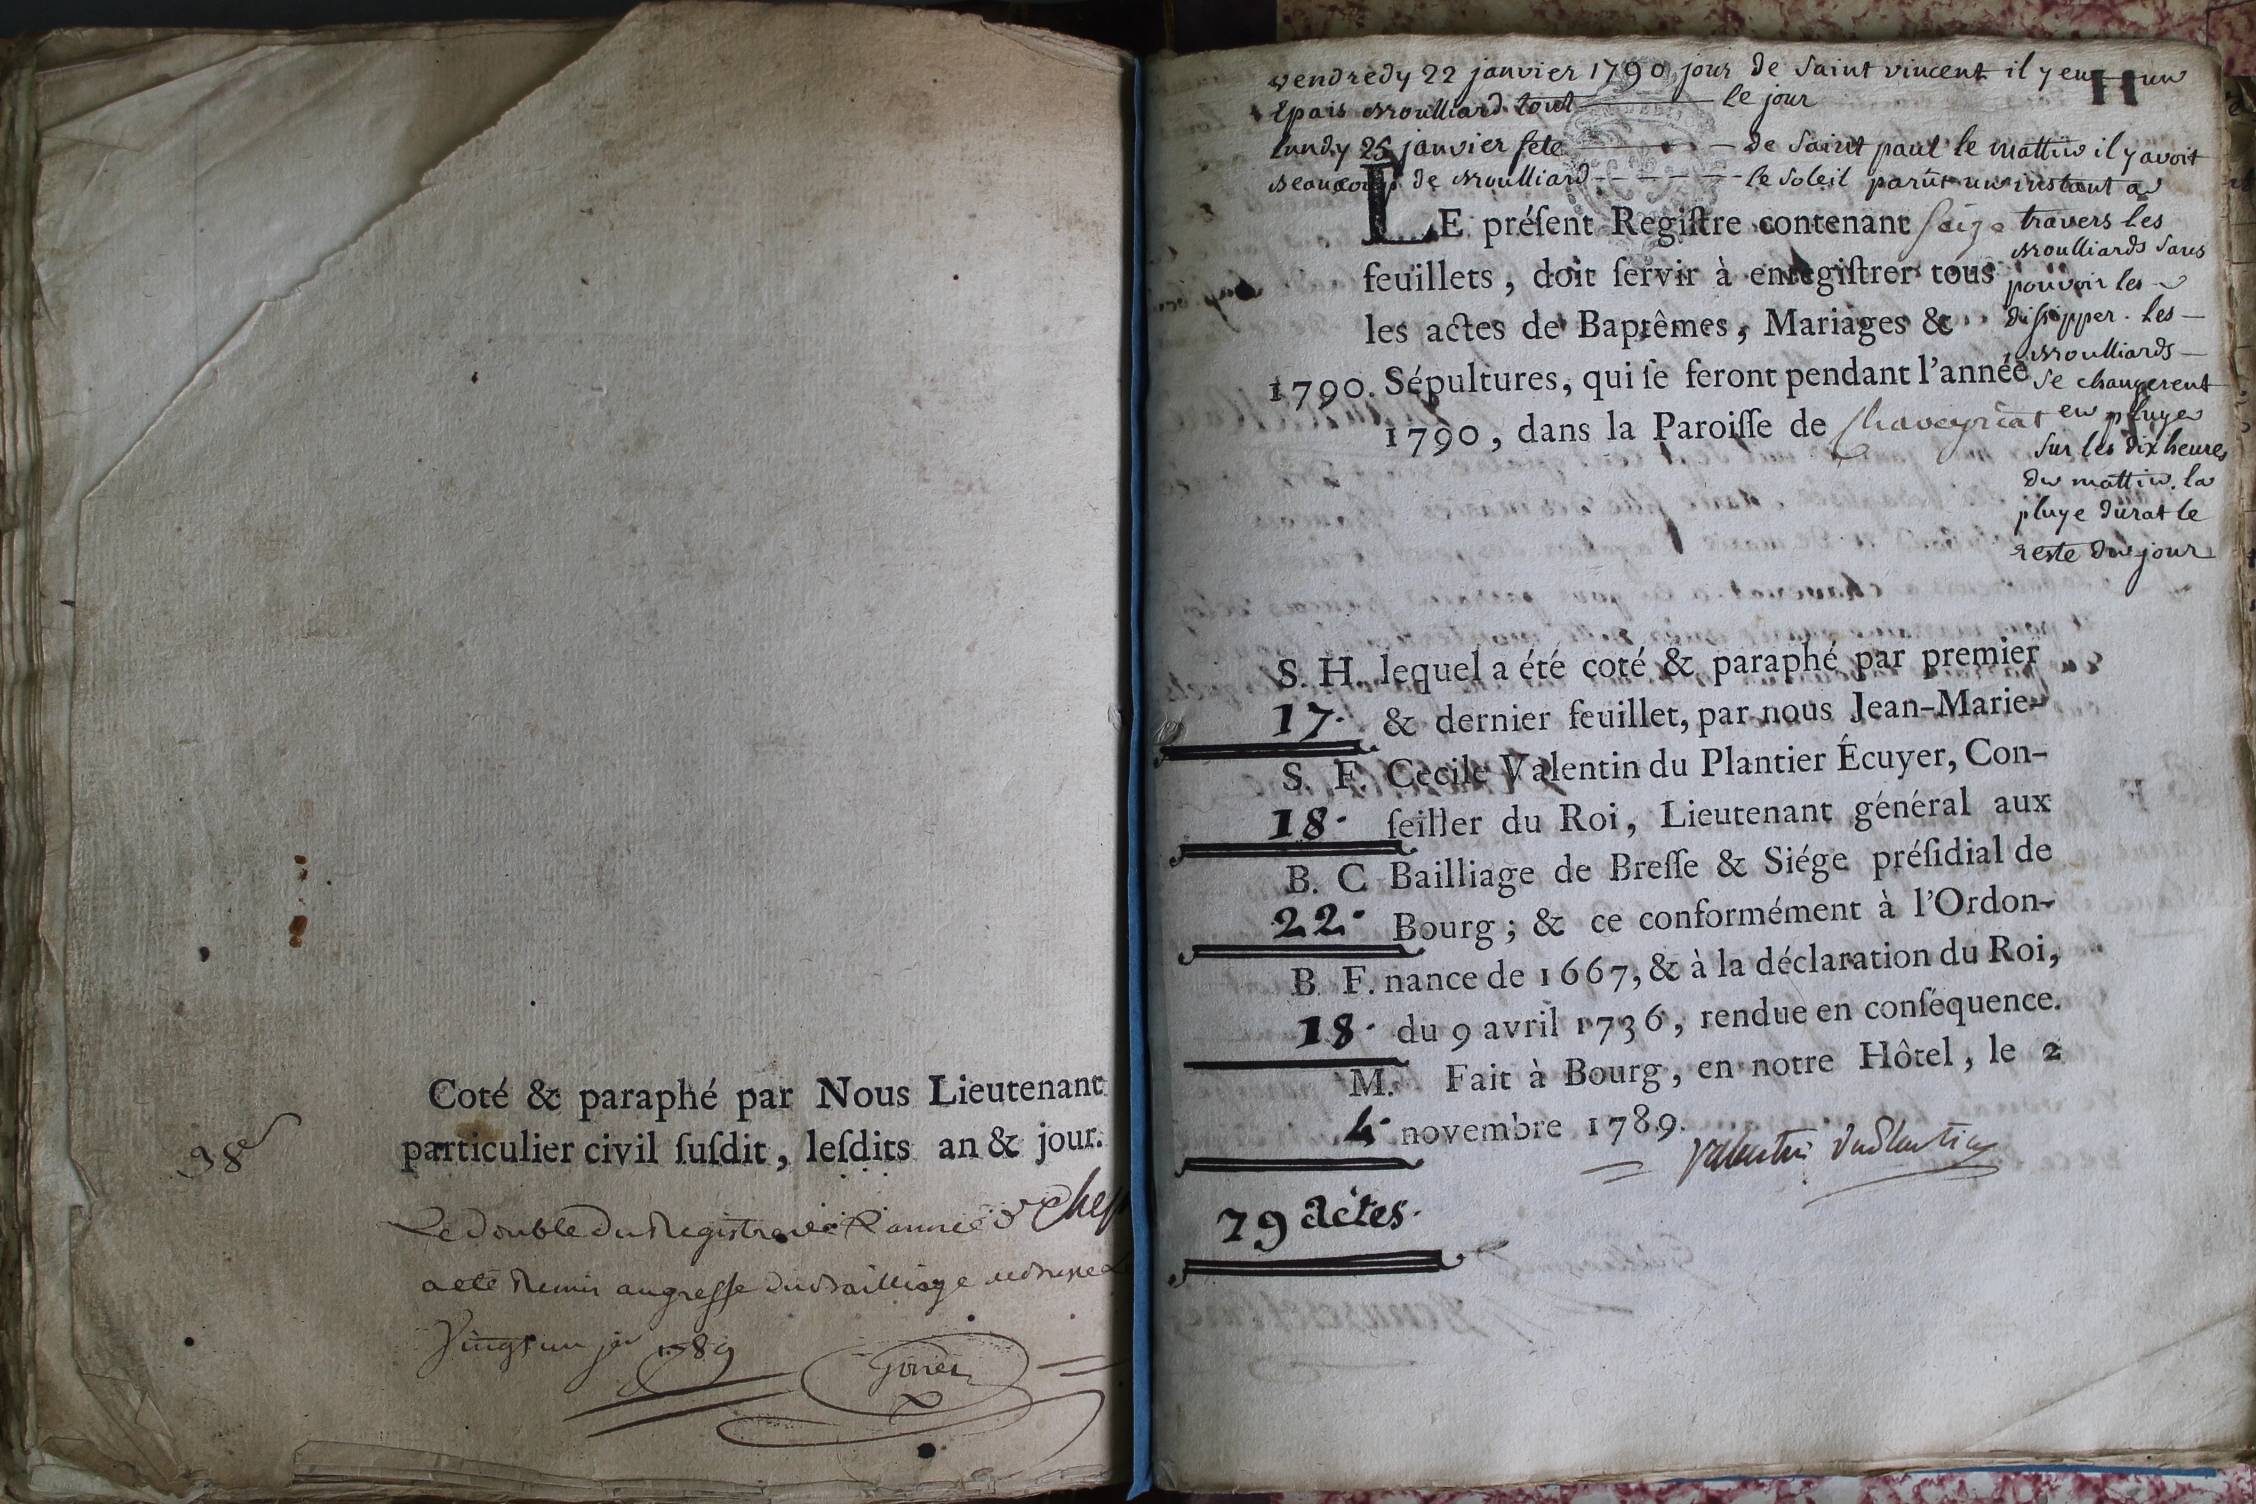 Coté & paraphé par Nous Lieutenant
particulier civil ſuſdit, leſdits an & jour.
Le double du Registre de l'année
a eté Remis au greffe du Bailliage
Vingt un 1789
vendredy 22 janvier 1790 jour de saint vincent il y eu un
Epais Brouilliard tout le jour
lundy 25 janvier fete de saint paul le mattin il y avoit
Beaucoup de Brouilliard le soleil parût un instant a
travers les
Brouilliards sans
pouvoir les
dissipper. les
Brouilliards
se changerent
en pluye
sur les dix heures
du mattin. la
pluye durat le
reste du jour
LE préſent Regiſtre contenant seize
feuillets, doit ſervir à enregiſtrer tous
les actes de Baptêmes, Mariages &
1790. Sépultures, qui ſe feront pendant l'année
1790, dans la Paroiſſe de Chaveyriat
S. H. lequel a été coté & paraphé par premier
17. & dernier feuillet, par nous Jean-Marie-
S. F. Cecile Valentin du Plantier Écuyer, Con-
18. ſeiller du Roi, Lieutenant général aux
B. C Bailliage de Breſſe & Siége préſidial de
22. Bourg; & ce conformément à l'Ordon-
B. F. nance de 1667, & à la déclaration du Roi,
18. du 9 avril 1736, rendue en conſéquence.
M. Fait à Bourg, en notre Hôtel, le 2
4. novembre 1789.
Valentin duPlantier
79 actes.